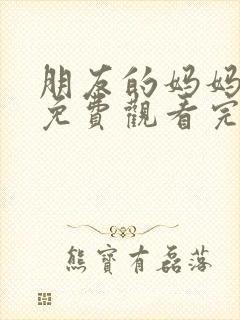 朋友的妈妈
免費觀看完
熊寶有磊落